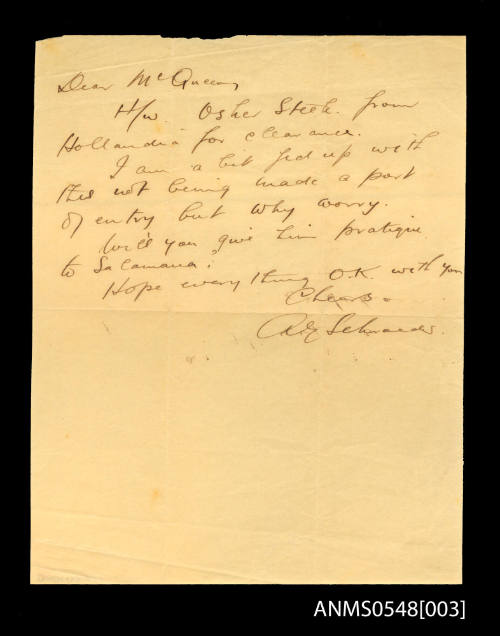 Dear McQueen
H/w. Osker Speck. from
Hollandia for clearance.
I am a bit fed up with
this not being made a port
of entry but why worry.
Will you give him pratique
to Salamaua?
Hope every thing O.K. with you
Cheers
Schroeder.
ANMS0548[003]